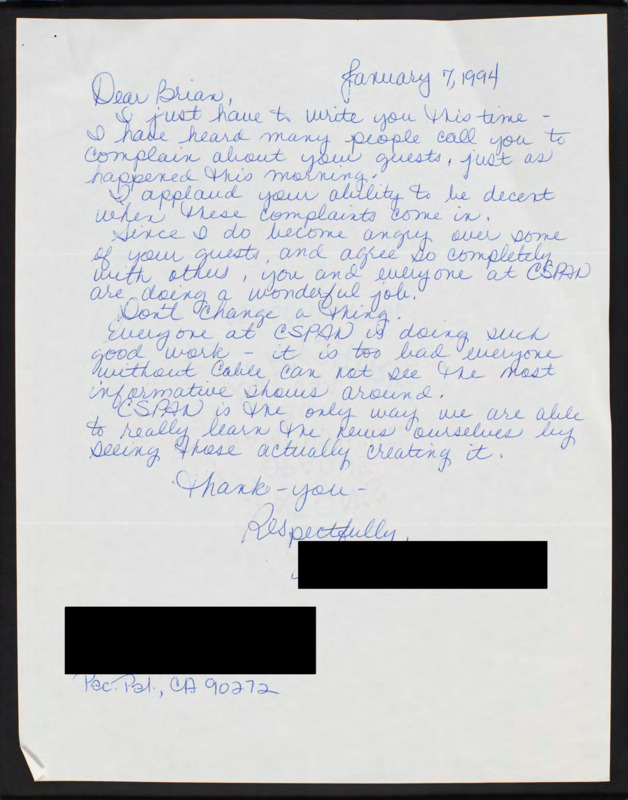 January 7, 1994
Dear Brian,
I just have to write you this time -
I have heard many people call you to
complain about your guests, just as
happened this morning.
I applaud your ability to be decent
when these complaints come in.
Since I do become angry over some
of your guests, and agree so completely
with others, you and everyone at CSPAN
are doing a wonderful job.
Don't change a thing.
Everyone at CSPAN is doing such
good work - it is too bad everyone
without Cable can not see the most
informative shows around.
CSPAN is the only way we are able
to really learn the news ourselves by
seeing those actually creating it.
Thank-you-
Respectfully,
Pac. Pal., CA 90272